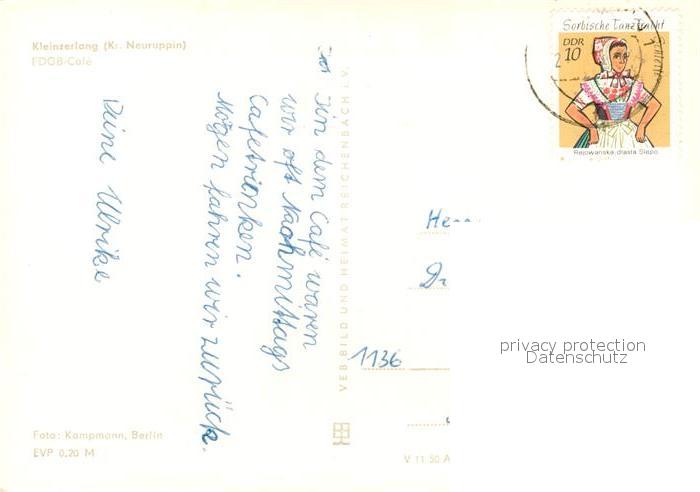 Kleinzerlang (Kr. Neuruppin)
FDGB-Café
In dem Café waren
wir oft Nachmittags
Cafetrinken.
Morgen fahren wir zurück.
Deine Ulrike
Foto: Kampmann, Berlin
EVP 0,20 M
VEB BILD UND HEIMAT REICHENBACH i. V.
V 11 50 A
Sorbische Tanztracht
DDR
10
Rejowanska drasta Slepo
Herr
Dr
1136
privacy protection
Datenschutz